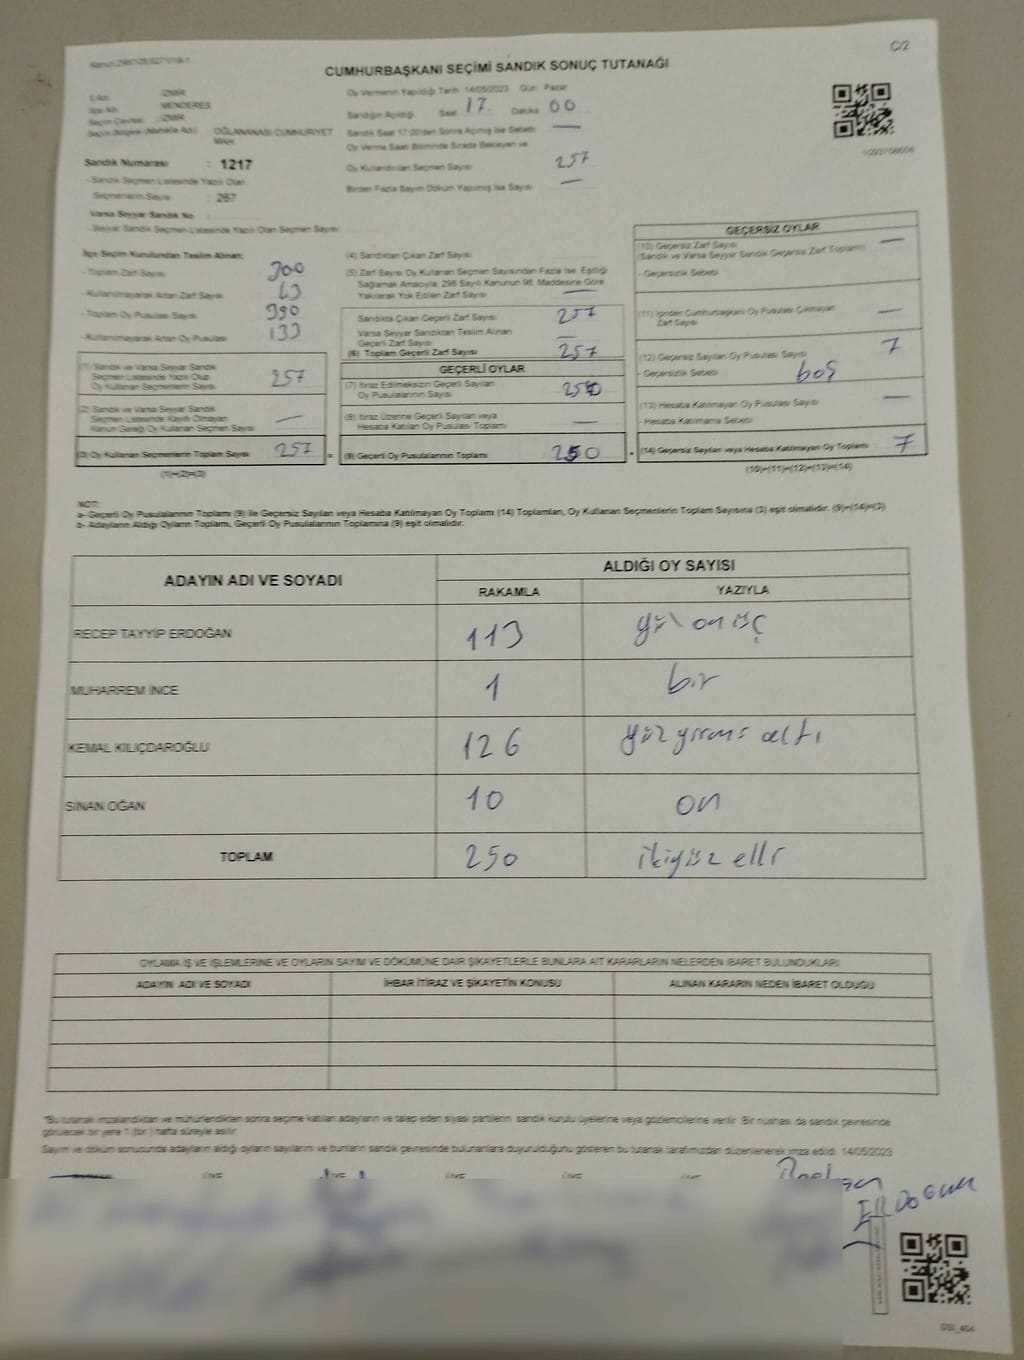 C/2
CUMHURBAŞKANI SEÇİMİ SANDIK SONUÇ TUTANAĞI
İli Adı : İZMİR
İlçe Adı : MENDERES
Seçim Çevresi : İZMİR
Seçim Bölgesi (Mahalle Adı) : OĞLANANASI CUMHURİYET MAH.
Sandık Numarası : 1217
- Sandık Seçmen Listesinde Yazılı Olan
Seçmenlerin Sayısı : 267
Varsa Seyyar Sandık No
- Seyyar Sandık Seçmen Listesinde Yazılı Olan Seçmen Sayısı
Oy Vermenin Yapıldığı Tarih 14/05/2023 Gün: Pazar
Sandığın Açıldığı Saat 17. Dakika 00
Sandık Saat 17:00'den Sonra Açılmış İse Sebebi —
Oy Verme Saati Bitiminde Sırada Bekleyen ve
Oy Kullandırılan Seçmen Sayısı 257
Birden Fazla Sayım Döküm Yapılmış İse Sayısı —
İlçe Seçim Kurulundan Teslim Alınan;
- Toplam Zarf Sayısı 300
- Kullanılmayarak Artan Zarf Sayısı 43
- Toplam Oy Pusulası Sayısı 390
- Kullanılmayarak Artan Oy Pusulası 133
(1) Sandık ve Varsa Seyyar Sandık
Seçmen Listesinde Yazılı Olup
Oy Kullanan Seçmenlerin Sayısı 257
(2) Sandık ve Varsa Seyyar Sandık
Seçmen Listesinde Kayıtlı Olmayan
Kanun Gereği Oy Kullanan Seçmen Sayısı —
(3) Oy Kullanan Seçmenlerin Toplam Sayısı 257 =
(1)+(2)=(3)
(4) Sandıktan Çıkan Zarf Sayısı
(5) Zarf Sayısı Oy Kullanan Seçmen Sayısından Fazla İse, Eşitliği
Sağlamak Amacıyla, 298 Sayılı Kanunun 98. Maddesine Göre
Yakılarak Yok Edilen Zarf Sayısı —
Sandıkta Çıkan Geçerli Zarf Sayısı 257
Varsa Seyyar Sandıktan Teslim Alınan
Geçerli Zarf Sayısı —
(6) Toplam Geçerli Zarf Sayısı 257
GEÇERLİ OYLAR
(7) İtiraz Edilmeksizin Geçerli Sayılan
Oy Pusulalarının Sayısı 250
(8) İtiraz Üzerine Geçerli Sayılan veya
Hesaba Katılan Oy Pusulası Toplamı —
(9) Geçerli Oy Pusulalarının Toplamı 250 +
GEÇERSİZ OYLAR
(10) Geçersiz Zarf Sayısı —
(Sandık ve Varsa Seyyar Sandık Geçersiz Zarf Toplamı)
- Geçersizlik Sebebi
(11) İçinden Cumhurbaşkanı Oy Pusulası Çıkmayan
Zarf Sayısı —
(12) Geçersiz Sayılan Oy Pusulası Sayısı 7
- Geçersizlik Sebebi boş
(13) Hesaba Katılmayan Oy Pusulası Sayısı —
- Hesaba Katılmama Sebebi
(14) Geçersiz Sayılan veya Hesaba Katılmayan Oy Toplamı 7
(10)+(11)+(12)+(13)=(14)
NOT:
a- Geçerli Oy Pusulalarının Toplamı (9) ile Geçersiz Sayılan veya Hesaba Katılmayan Oy Toplamı (14) Toplamları, Oy Kullanan Seçmenlerin Toplam Sayısına (3) eşit olmalıdır. (9)+(14)=(3)
b- Adayların Aldığı Oyların Toplamı, Geçerli Oy Pusulalarının Toplamına (9) eşit olmalıdır.
ADAYIN ADI VE SOYADI ALDIĞI OY SAYISI
RAKAMLA YAZIYLA
RECEP TAYYİP ERDOĞAN 113 yüz on üç
MUHARREM İNCE 1 bir
KEMAL KILIÇDAROĞLU 126 yüz yirmi altı
SİNAN OĞAN 10 on
TOPLAM 250 ikiyüz elli
OYLAMA İŞ VE İŞLEMLERİNE VE OYLARIN SAYIM VE DÖKÜMÜNE DAİR ŞİKAYETLERLE BUNLARA AİT KARARLARIN NELERDEN İBARET BULUNDUKLARI
ADAYIN ADI VE SOYADI İHBAR İTİRAZ VE ŞİKAYETİN KONUSU ALINAN KARARIN NEDEN İBARET OLDUĞU
"Bu tutanak imzalandıktan ve mühürlendikten sonra seçime katılan adayların ve talep eden siyasi partilerin sandık kurulu üyelerine veya gözlemcilerine verilir. Bir nüshası da sandık çevresinde
görülecek bir yere 1 (bir) hafta süreyle asılır.
Sayım ve döküm sonucunda adayların aldığı oyların sayılarını ve bunların sandık çevresinde bulunanlara duyurulduğunu gösteren bu tutanak tarafımızdan düzenlenerek imza edildi. 14/05/2023
ÜYE ÜYE ÜYE ÜYE ÜYE
ERDOGAN